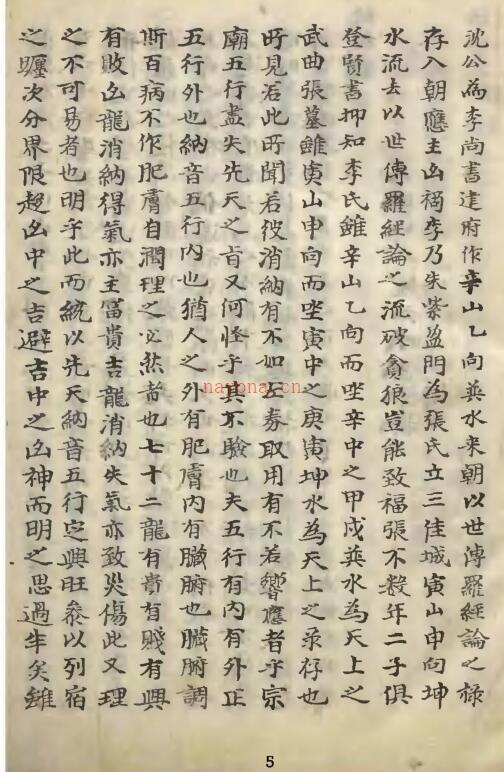 沈公為李尚書建府作辛山乙向巽水來朝以世傳羅經論之祿
存入朝應主凶禍李乃朱紫盈門為張氏立三佳城寅山申向坤
水流去以世傳羅經論之流破貪狼豈能致福張不数年二子俱
登賢書抑知李氏雖辛山乙向而坐辛中之甲戌巽水為天上之
武曲張墓雖寅山申向而坐寅中之庚寅坤水為天上之祿存也
所見若此所聞若彼消納有不如左券取用有不若響應者乎宗
廟五行盡失先天之旨又何怪乎其不驗也夫五行有內有外正
五行外也納音五行內也猶人之外有肥膚內有臟腑也臟腑調
斯百病不作肥膚自潤理之必然者也七十二龍有貴有賤有興
有敗凶龍消納得氣亦主富貴吉龍消納失氣亦致災傷此又理
之不可易者也明乎此而統以先天納音五行定興旺叅以列宿
之躔次分界限趨凶中之吉避吉中之凶神而明之思過半矣雖
nayona.cn
5